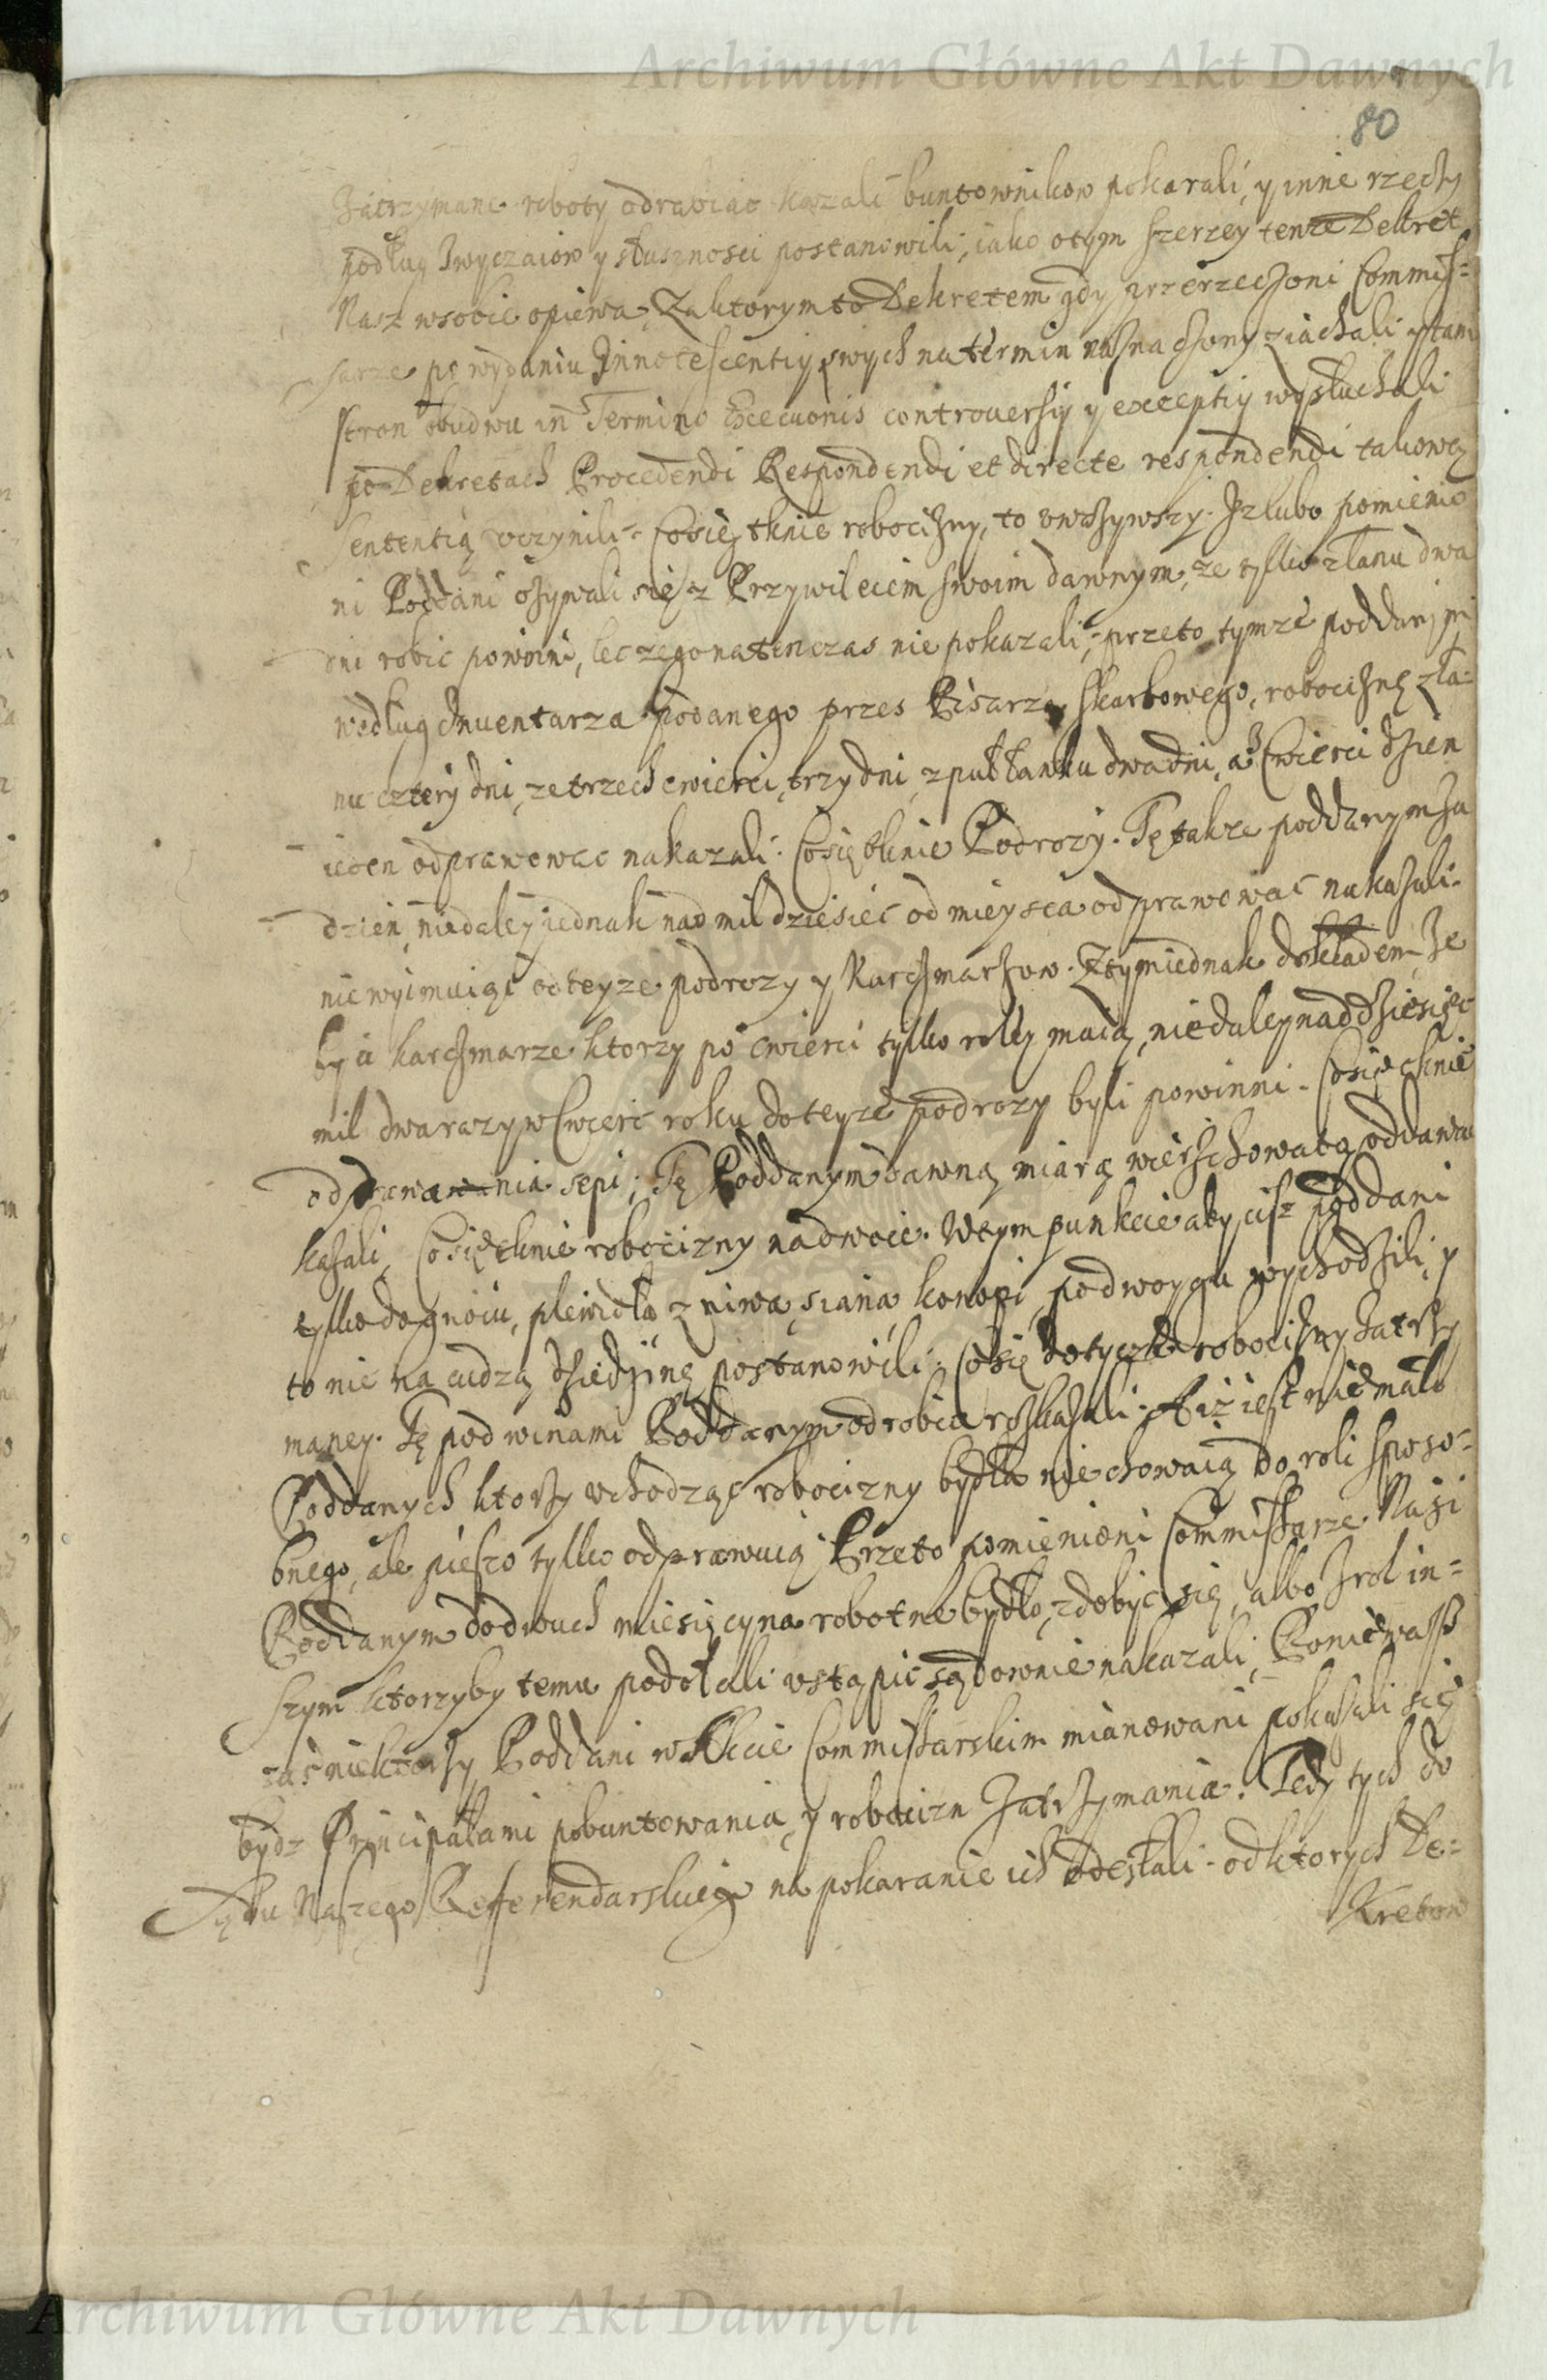 Archiwum Główne Akt Dawnych
80
Zatrzymane roboty odrabiac kazali buntownikow pokarali, y inne rzeczy
podług Zwyczaiow y słusznosci postanowili, iako otym szerzey tenze Dekret
Nasz wsobie opiewa, Zaktorym to Dekretem gdy przerzeczoni Commis=
sarze po wydaniu Innotescentiy swych na termin naznaczony ziachali y tam
stron obudwu in Termino Execuonis controuersiy y exceptiy wysłuchali
po Dekretach Procedendi Respondendi et directe respondendi takową
sententią vczynili = Cosię tknie robocizny, to vwazywszy. Iz lubo pomienio
ni Poddani ozywali się z Przywileiem swoim dawnym, ze tylko złanu dwa
dni robic powinni, lecz ego natenczas nie pokazali, przeto tymze poddanym
według Inuentarza podanego przes Pisarza skarbowego, robociznę zła=
nu cztery dni, ze trzech cwierci, trzy dni, z puł łanku dwa dni, a z Cwierci dzien
ieden odprawowac nakazali. Cosię tknie Podrozy. Tę takze poddanym za
dzien, niedaley iednak nad mil dziesięc od mieysca odprawowac nakazali.
nie wyimuiąc od teyze podrozy y Karczmarzow. Ztym iednak dokładem, Ze
by ci karczmarze ktorzy po cwierci tylko roley maią, niedaley nad dziesięc
mil dwa razy w Cwierc roku do teyze podrozy byli powinni. Cosię tknie
oddawania sepi; Tę Poddanym dawną miarą wierzchowatą oddawac
kazali, Cosię tknie robocizny nadwoie. Wtym punkcie aby ciż poddani
tylko do gnoiu, plewidła z niwa, siana, konopi, podwoygu wychodzili, y
to nie na cudzą dziedzinę postanowili. Cosię dotycze robocizny Zatrzy
maney. Tę pod winami Poddanym odrobic roskazali. A iż iest niemało
Poddanych ktorzy vchodząc robocizny bydła nie chowaią do roli sposo=
bnego, ale pieszo tylko odprawuią; Przeto pomienieni Commissarze Nasi
Poddanym do dwuch miesięcy na robotne bydło, zdobyc się, albo Zrol in=
szym ktorzyby temu podołali vstąpic sądownie nakazali, Poniewasz
zaś niektorzy Poddani w Akcie Commissarskim mianowani pokazali się
bydz Principałami pobuntowania, y robocizn Zatrzymania. Tedy tych do
Sądu Naszego Referendarskiego na pokaranie ich odesłali. od ktorych De=
kretow
Archiwum Główne Akt Dawnych